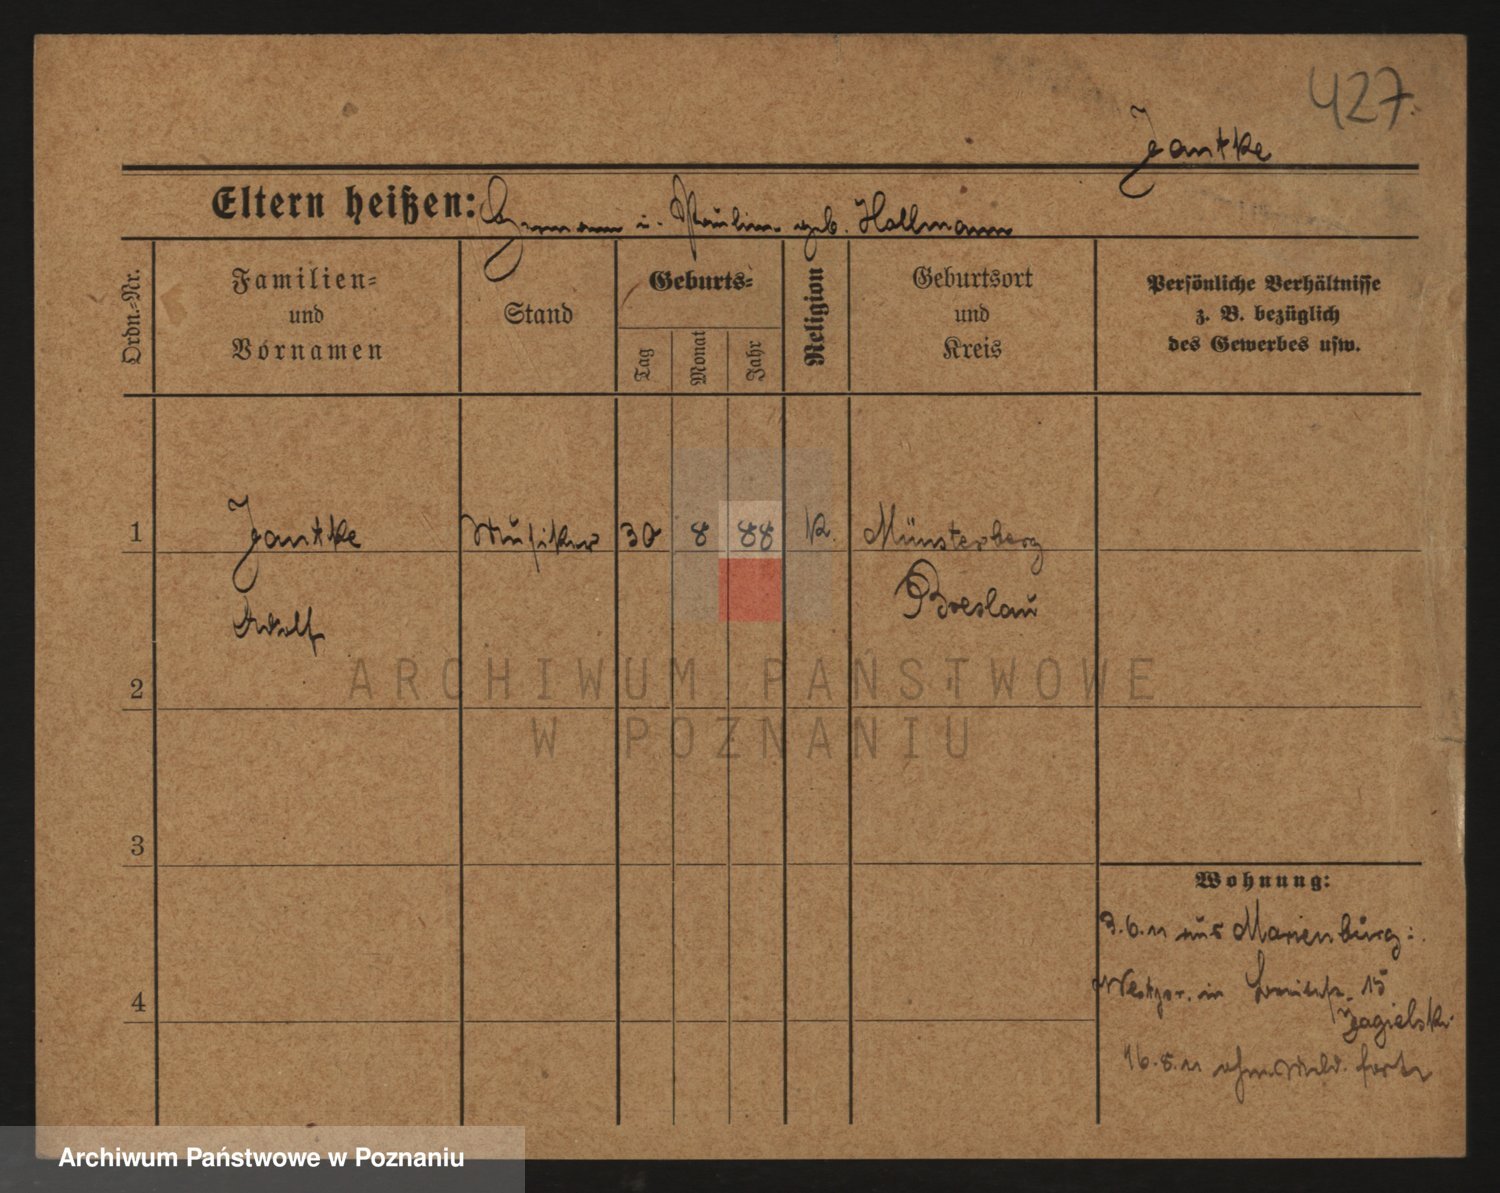 427.
Jantke
Eltern heißen: Hermann u. Pauline geb. Hallmann
Ordn.-Nr.
Familien-
und
Vornamen
Stand
Geburts-
Tag
Monat
Jahr
Religion
Geburtsort
und
Kreis
Persönliche Verhältnisse
z. B. bezüglich
des Gewerbes usw.
1 Jantke Musiker 30 8 88 K. Münsterberg
Adolf Breslau
2
3
4
Wohnung:
3.6.11 aus Marienburg
Westpr. in 15
Jagielski
16.8.11 ohne Meld. fort
ARCHIWUM PAŃSTWOWE
W POZNANIU
Archiwum Państwowe w Poznaniu